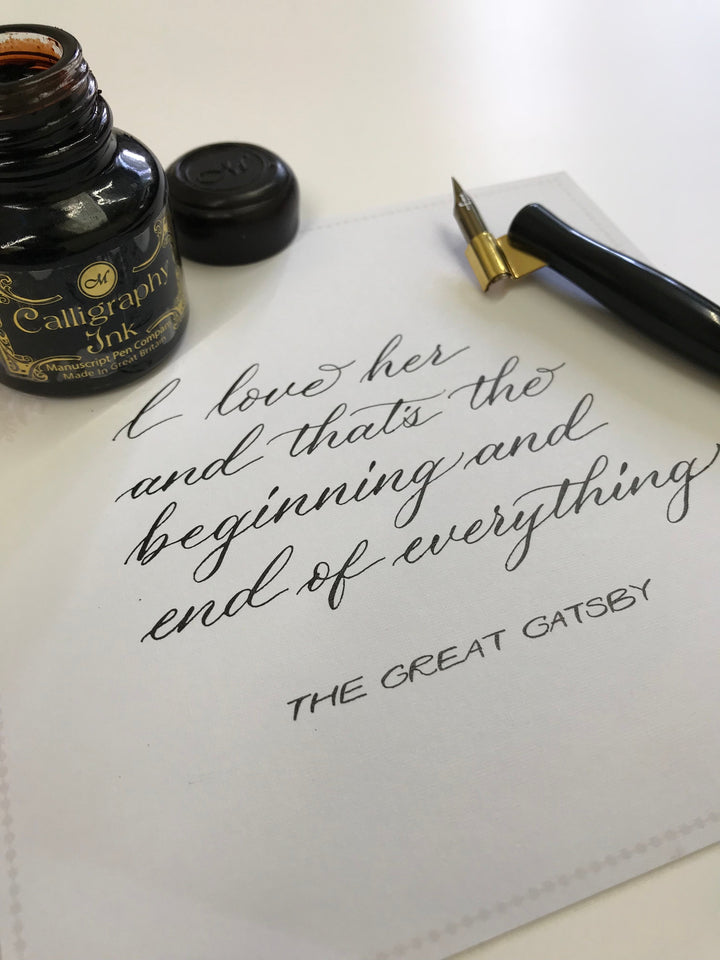 M
Calligraphy
Ink
Manuscript Pen Company
Made in Great Britain
M
I love her
and that's the
beginning and
end of everything
THE GREAT GATSBY